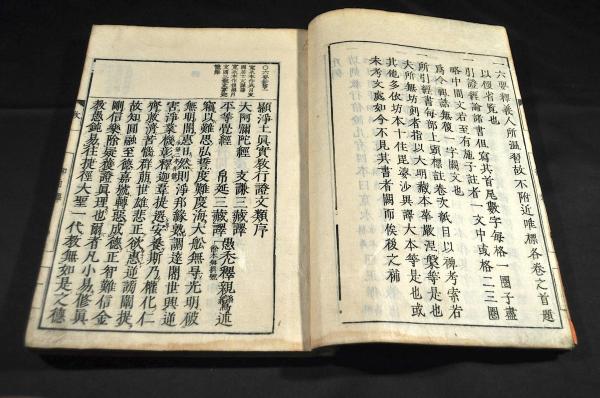 一六要釋義人所溫習故不附近唯標各卷之首題
以便省覽也
一引證經論諸書但寫其首尾數字每格一圈子盡
略中間文若至有施子註者一文中或格二三圈
爲令與語無複一字闕文也
一所引經書每部上頭標註卷次紙目以備考索若
大所無坊刻者指以大藏本華嚴涅槃等是也或
其他多依坊本十住毘婆沙與譯大本等是也或
未考文處如今不見其書者闕而俟後之補
顯淨土眞實教行證文類序
愚禿釋親鸞述
大阿彌陀經 支謙三藏譯
平等覺經 帛延三藏譯
竊以難思弘誓度難度海大船無㝵光明破
無明闇惠日然則淨邦緣熟調達闍世興逆
害淨業機彰釋迦韋提選安養斯乃權化仁
齊救濟苦惱群萠世雄悲正欲惠逆謗闡提
故知圓融至德嘉號轉惡成德正智難信金
剛信樂除疑獲證眞理也爾者凡小易修眞
教愚鈍易往捷徑大聖一代教無如是之德